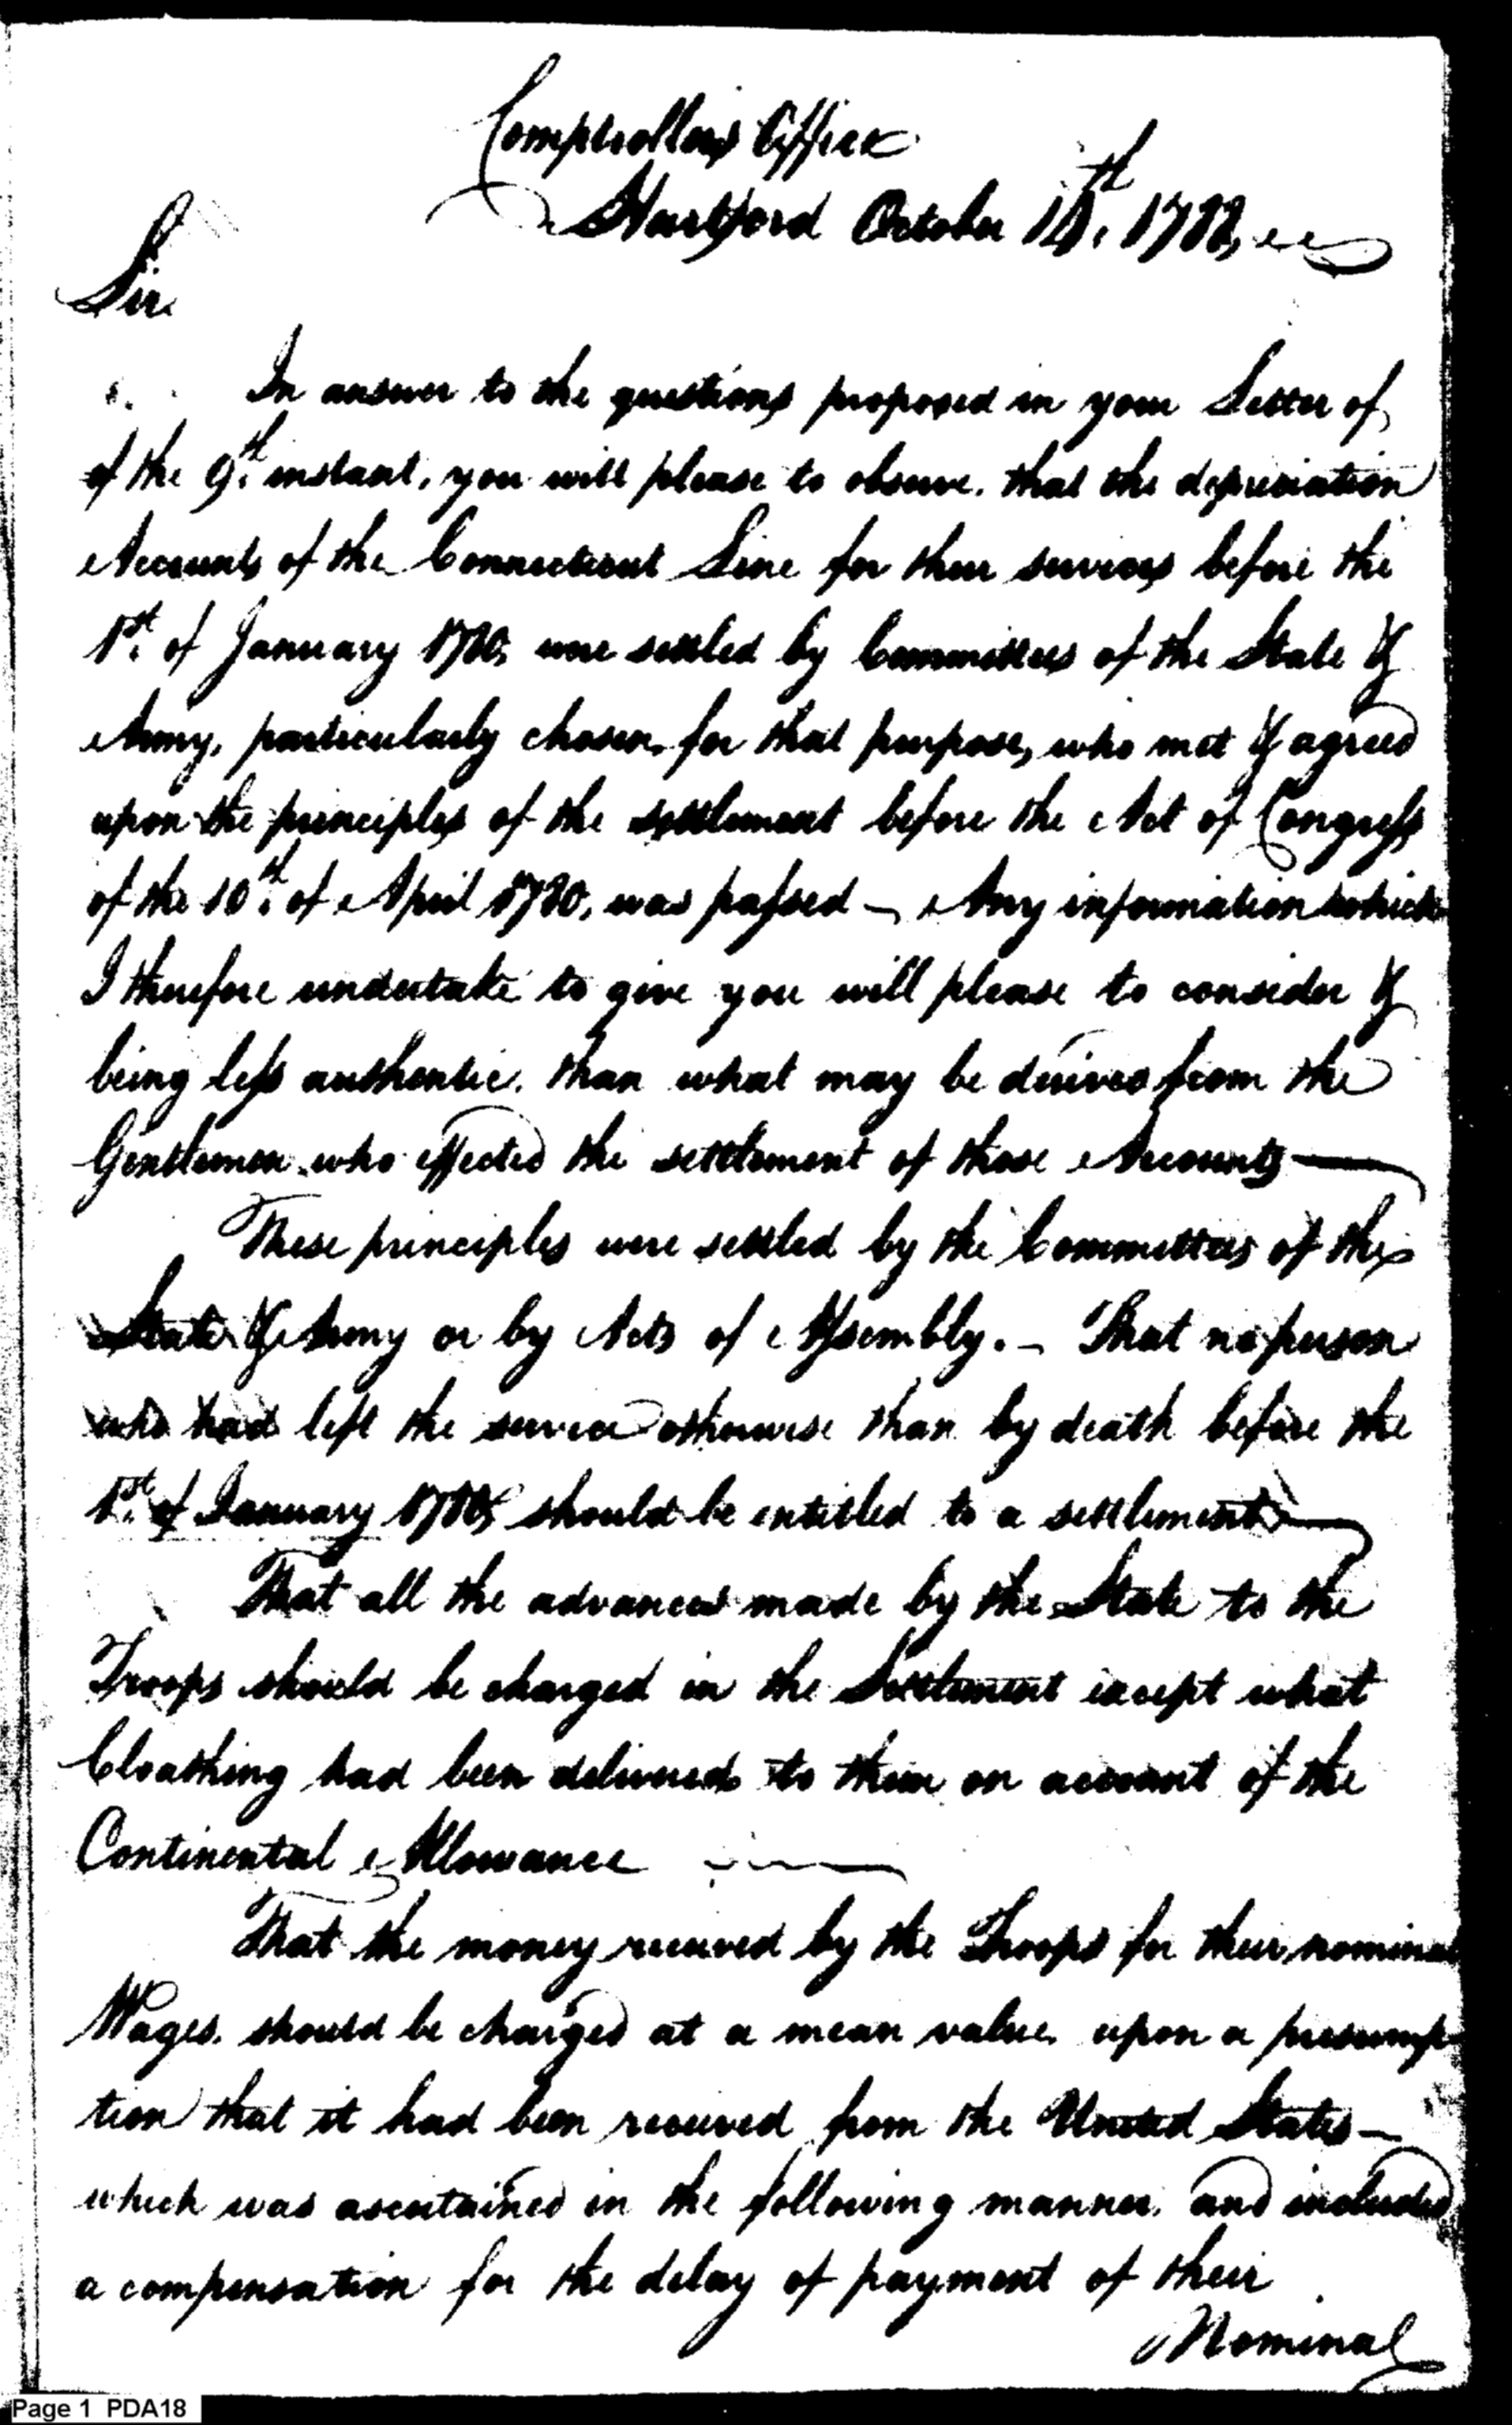 Comptrollers Office
Hartford October 14th, 1788,
Sir
In answer to the questions proposed in your Letter of
of the 9th. instant, you will please to observe, that the depreciation
Accounts of the Connecticut Line for their services before the
1st. of January 1780, were settled by Committees of the State &
Army, particularly chosen, for that purpose, who met & agreed
upon the principles of the settlement before the Act of Congress
of the 10th. of April 1780, was passed – Any information which
I therefore undertake to give you will please to consider &
being less authentic, than what may be derived from the
Gentlemen who effected the settlement of those Accounts —
These principles were settled by the Committees of the
State & Army or by Acts of Assembly. – That no person
who had left the service otherwise than by death before the
1st. of January 1780, should be entitled to a settlement —
That all the advances made by the State to the
Troops should be charged in the Settlement except what
Cloathing had been delivered to them on account of the
Continental Allowance —
That the money received by the Troops for their nominal
Wages, should be charged at a mean value, upon a presump-
tion that it had been received from the United States —
which was ascertained in the following manner, and included
a compensation for the delay of payment of their
Nominal
Page 1 PDA18